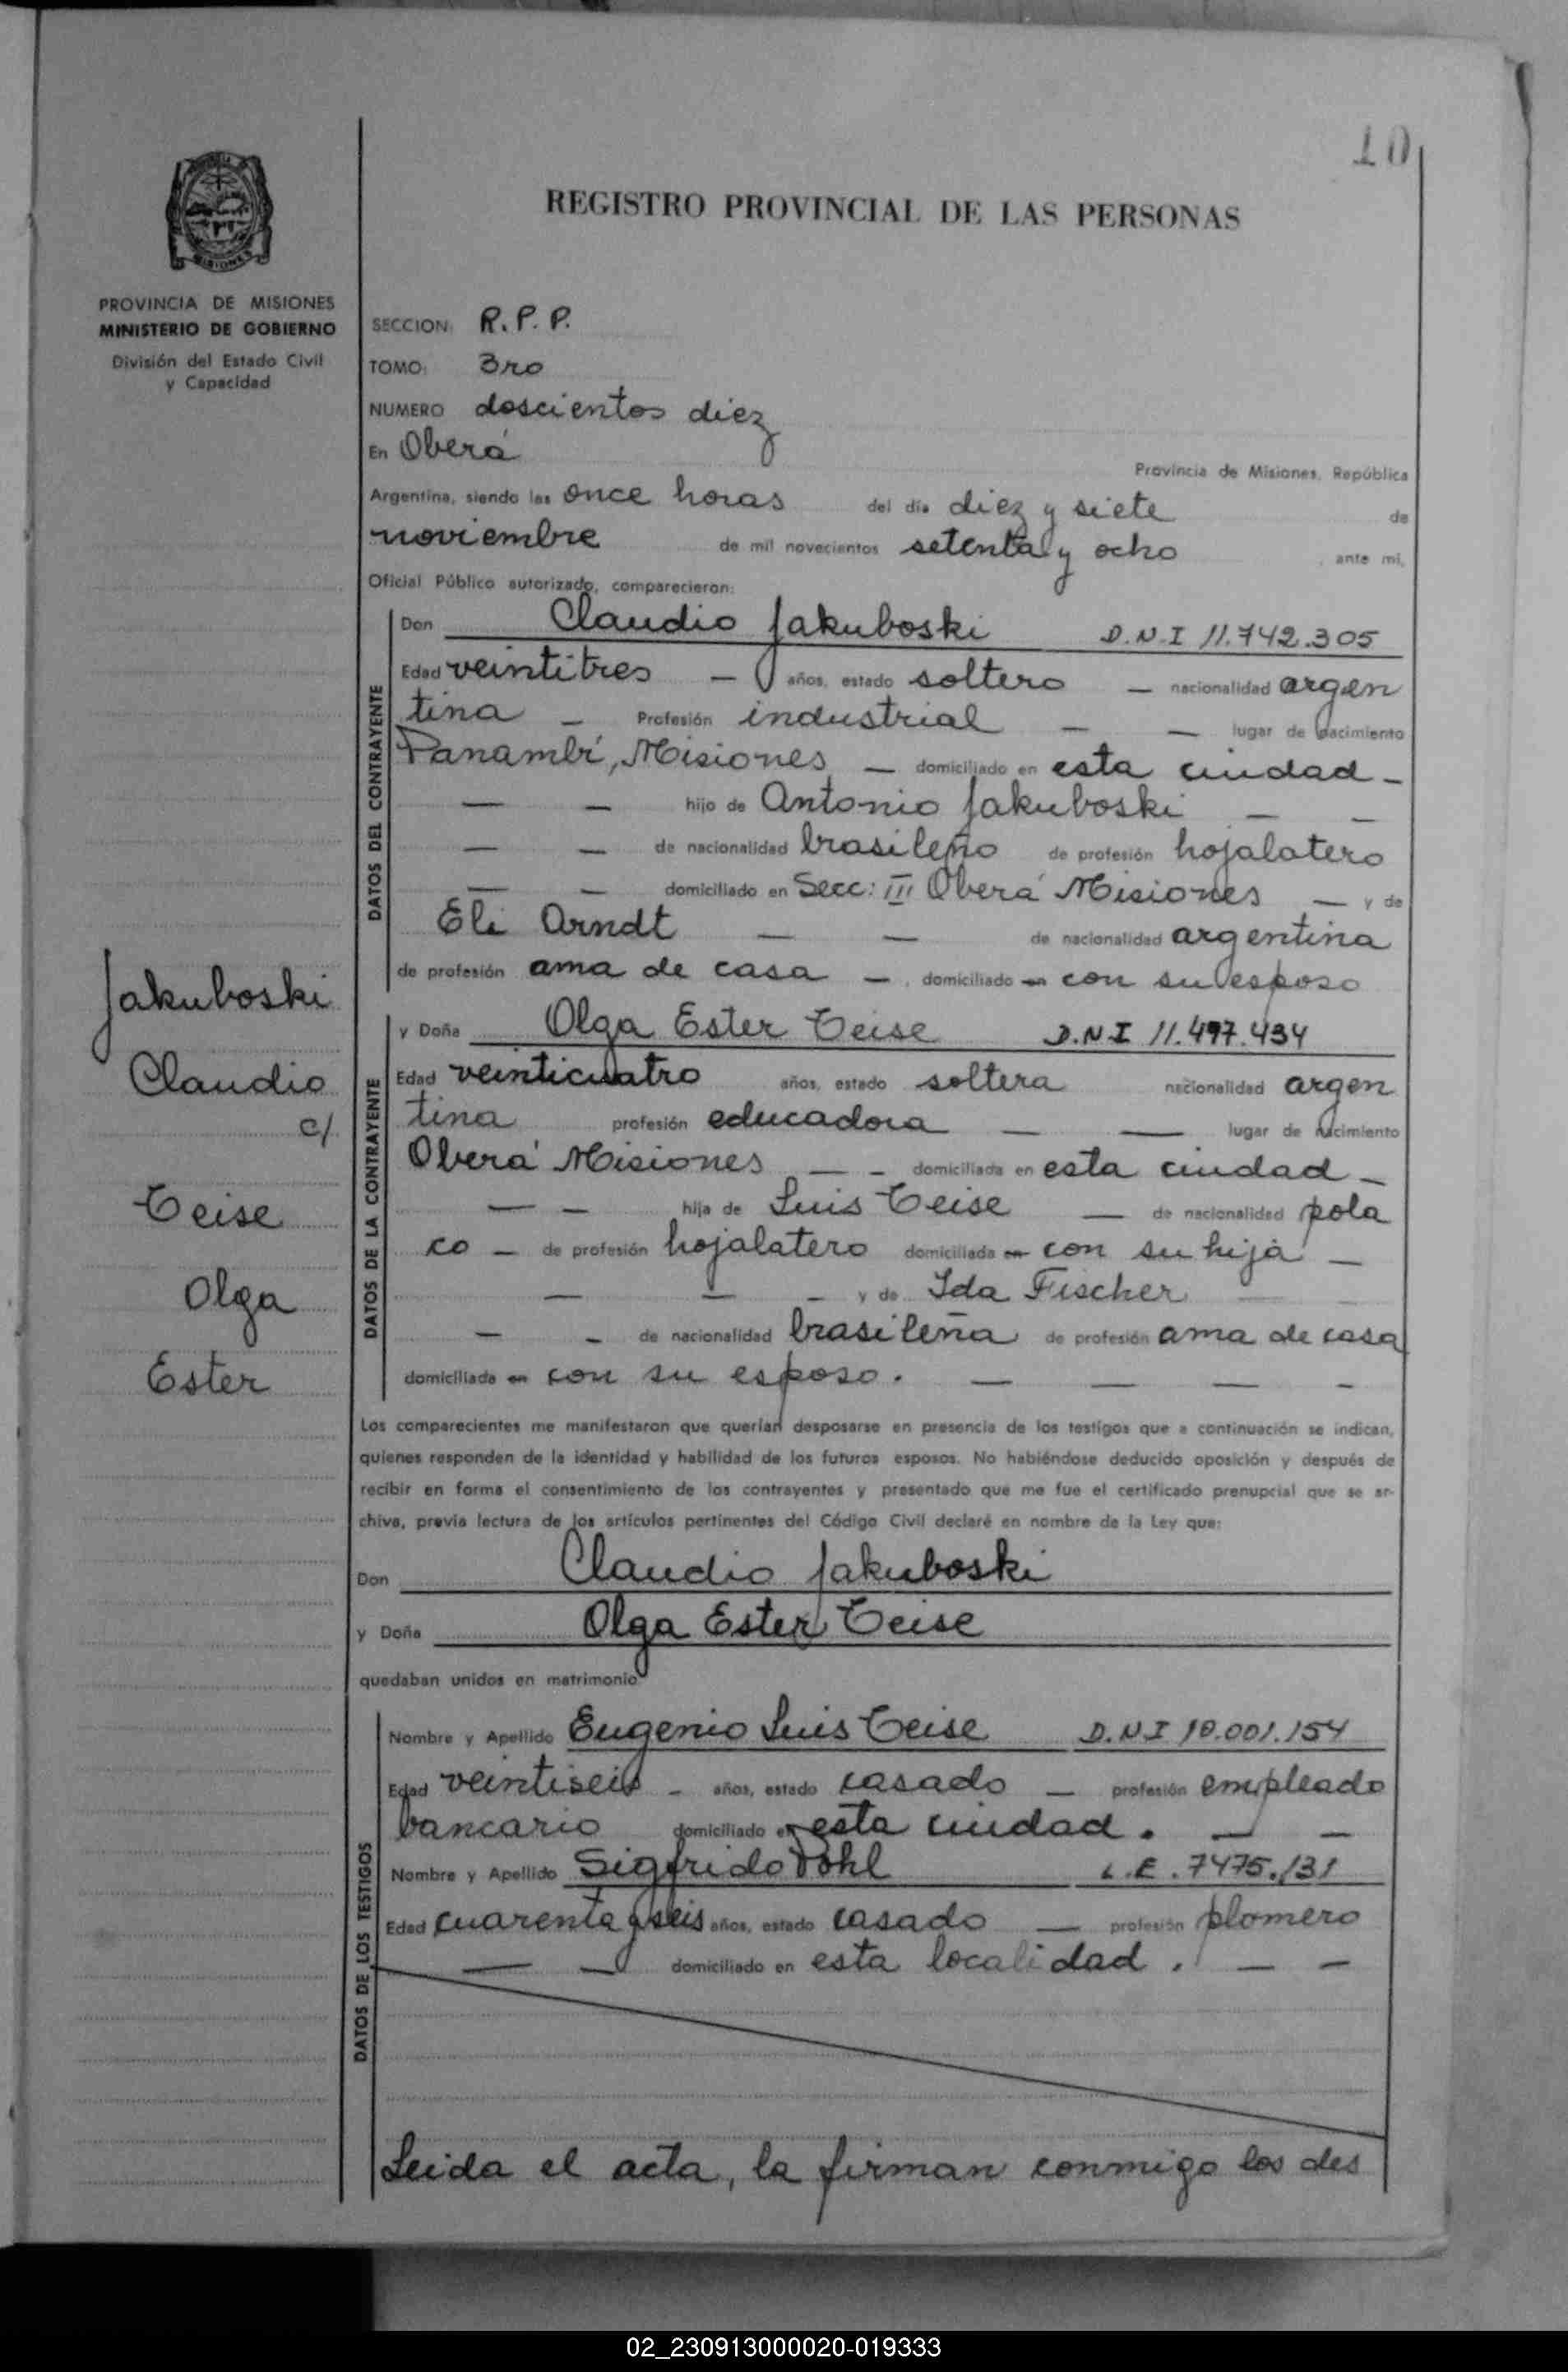 10
REGISTRO PROVINCIAL DE LAS PERSONAS
MISIONES
PROVINCIA DE MISIONES
MINISTERIO DE GOBIERNO
División del Estado Civil
y Capacidad
SECCION: R.P.P.
TOMO: 3ro
NUMERO doscientos diez
En Oberá
Provincia de Misiones, República
Argentina, siendo las once horas del día diez y siete de
noviembre de mil novecientos setenta y ocho , ante mi,
Oficial Público autorizado, comparecieron:
DATOS DEL CONTRAYENTE
Don Claudio Jakuboski D.N.I 11.742.305
Edad veintitres — años, estado soltero — nacionalidad argen
tina — Profesión industrial — — lugar de nacimiento
Panambí, Misiones — domiciliado en esta ciudad —
— — hijo de Antonio Jakuboski — —
— — de nacionalidad brasileño de profesión hojalatero
— — domiciliado en Secc: III Oberá Misiones — y de
Eli Arndt — — de nacionalidad argentina
de profesión ama de casa — , domiciliado en con su esposo
DATOS DE LA CONTRAYENTE
y Doña Olga Ester Teise D.N.I 11.497.434
Edad veinticuatro años, estado soltera nacionalidad argen
tina profesión educadora — — lugar de nacimiento
Oberá Misiones — — domiciliada en esta ciudad —
— — hija de Luis Teise — de nacionalidad pola
co — de profesión hojalatero domiciliada en con su hija —
— — — y de Ida Fischer
— — de nacionalidad brasileña de profesión ama de casa
domiciliada en con su esposo. — — — —
Jakuboski
Claudio
c/
Teise
Olga
Ester
Los comparecientes me manifestaron que querían desposarse en presencia de los testigos que a continuación se indican,
quienes responden de la identidad y habilidad de los futuros esposos. No habiéndose deducido oposición y después de
recibir en forma el consentimiento de los contrayentes y presentado que me fue el certificado prenupcial que se ar-
chiva, previa lectura de los artículos pertinentes del Código Civil declaré en nombre de la Ley que:
Don Claudio Jakuboski
y Doña Olga Ester Teise
quedaban unidos en matrimonio
DATOS DE LOS TESTIGOS
Nombre y Apellido Eugenio Luis Teise D.N.I 10.001.154
Edad veintiseis — años, estado casado — profesión empleado
bancario domiciliado en esta ciudad. — —
Nombre y Apellido Sigfrido Pohl L.E. 7475.131
Edad cuarenta y seis años, estado casado — profesión plomero
— — domiciliado en esta localidad. — —
Leida el acta, la firman conmigo los des
02_230913000020-019333